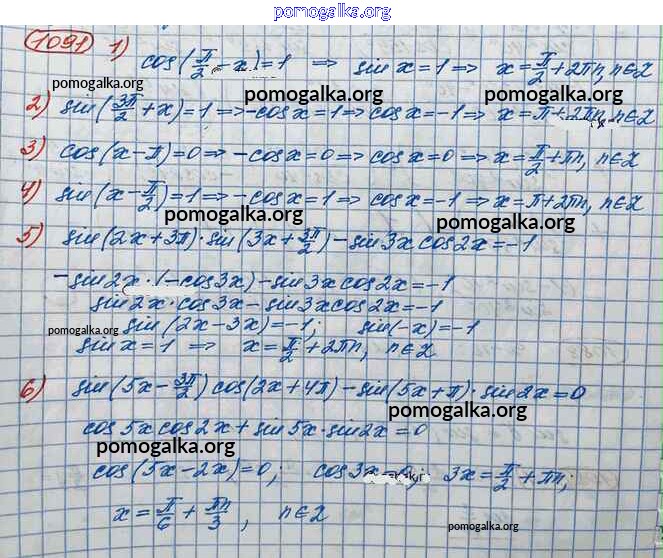 pomogalka.org
1091 1) cos(π/2 - x) = 1 => sin x = 1 => x = π/2 + 2πn, n∈Z
pomogalka.org pomogalka.org pomogalka.org
2) sin(3π/2 + x) = 1 => -cos x = 1 => cos x = -1 => x = π + 2πn, n∈Z
3) cos(x - π) = 0 => -cos x = 0 => cos x = 0 => x = π/2 + πn, n∈Z
4) sin(x - π/2) = 1 => -cos x = 1 => cos x = -1 => x = π + 2πn, n∈Z
pomogalka.org pomogalka.org
5) sin(2x + 3π)·sin(3x + 3π/2) - sin 3x cos 2x = -1
-sin 2x·(-cos 3x) - sin 3x cos 2x = -1
sin 2x·cos 3x - sin 3x cos 2x = -1
pomogalka.org
sin(2x - 3x) = -1; sin(-x) = -1
sin x = 1 => x = π/2 + 2πn, n∈Z
6) sin(5x - 3π/2) cos(2x + 4π) - sin(5x + π)·sin 2x = 0
pomogalka.org
cos 5x cos 2x + sin 5x·sin 2x = 0
pomogalka.org
cos(5x - 2x) = 0; cos 3x = 0; 3x = π/2 + πn;
x = π/6 + πn/3, n∈Z
pomogalka.org